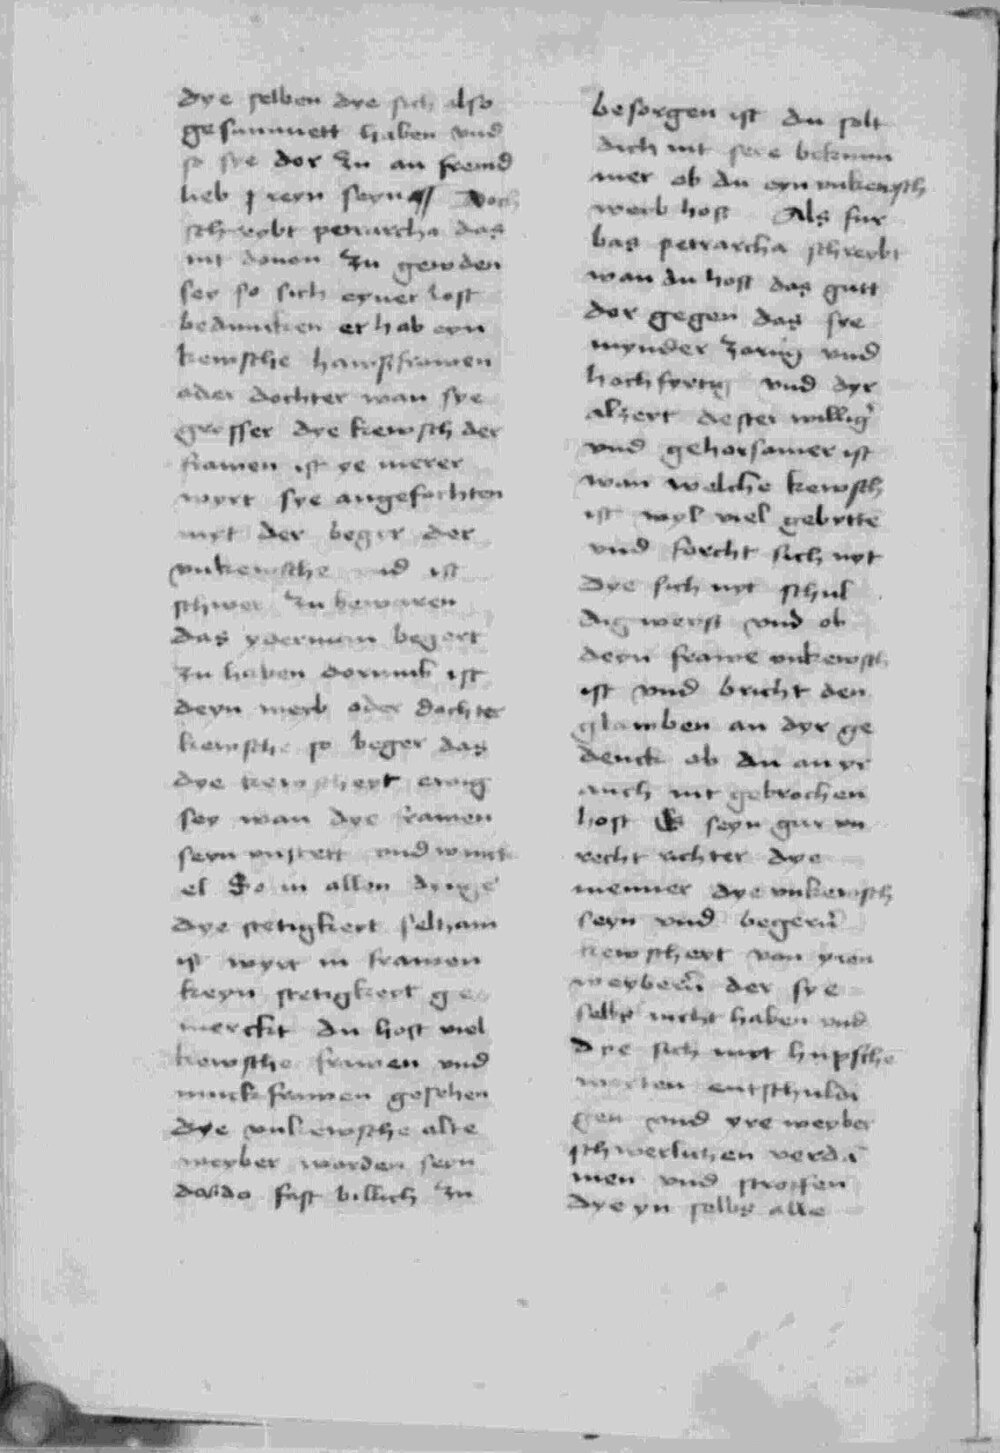 dye selben dye sich also
gesummett haben vnd
so sye dor zu an fremd
lieb seyn Doch
schreybt petrarcha das
nit douon zu gewden
sey so sich eyner lost
beduncken er hab eyn
kewsche hawsfrawen
oder dochter wan sye
grosser dye kewsch der
frawen ist ye merer
wyrt sye angefochten
myt der begir der
vnkewsche vnd ist
schwer zu bewaren
das yderman begert
zu haben dorumb ist
deyn weib oder dochter
kewsche so beger das
dye kewscheyt ewig
sey wan dye frawen
seyn vnstett vnd wanck
el So in allen dynge
dye stetigkeyt seltzam
ist wyrt in frawen
keyn stetigkeyt ge
merckt du host viel
kewsche frawen vnd
iunckfrawen gesehen
dye vnkewsche alte
weyber worden seyn
das do fast billich zu
besorgen ist du solt
dich nit sere bekum
mer ob du eyn vnkewsch
weib host Als fur
bas petrarcha schreybt
wan du host das gutt
dor gegen das sye
mynder zornig vnd
hochfertig vnd dyr
alzeyt dester willig
vnd gehorsamer ist
wan welche kewsch
ist wyl viel gebytte
vnd forcht sich nyt
dye sich nyt schul
dig weyst vnd ob
deyn frawe vnkewsch
ist vnd bricht den
glawben an dyr ge
denck ob du an yr
auch nit gebrochen
host Es seyn gar vn
recht richter dye
menner dye vnkewsch
seyn vnd begern
kewscheyt von yren
weybern der sye
selbs nicht haben vnd
dye sich myt hupsche
worten entschuldi
gen vnd yre weyber
schwerlichen verda
men vnd stroffen
dye yn selbs alle